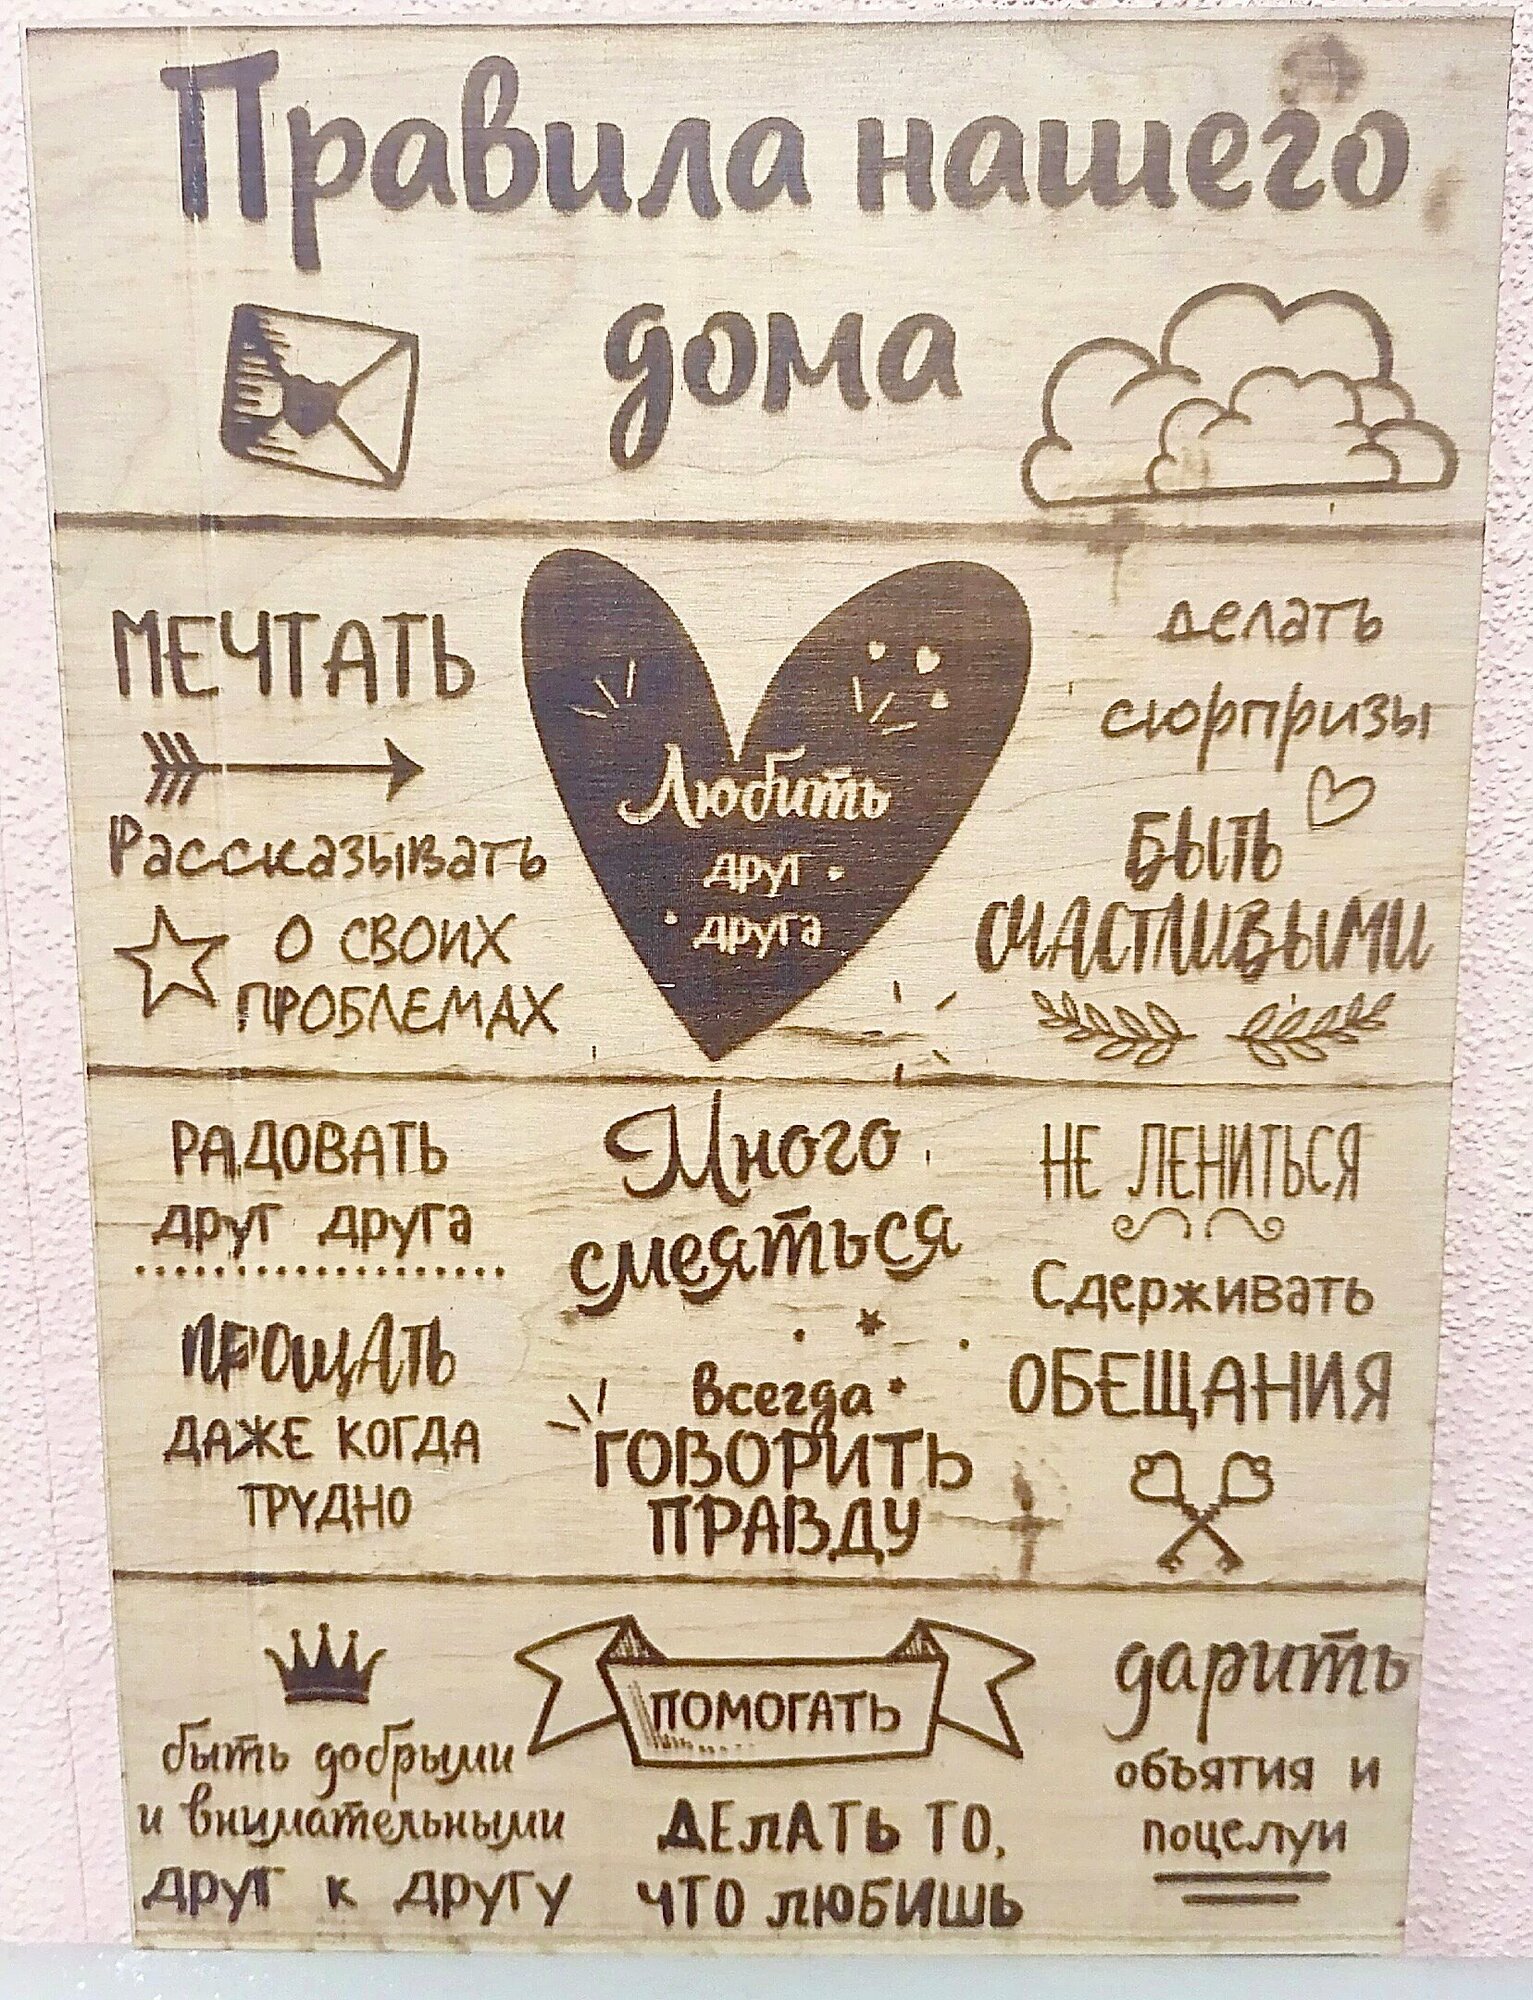 Правила нашего
дома
МЕЧТАТЬ
Рассказывать
О СВОИХ
ПРОБЛЕМАХ
Любить
друг
друга
делать
сюрпризы
БЫТЬ
СЧАСТЛИВЫМИ
РАДОВАТЬ
друг друга
ПРОЩАТЬ
ДАЖЕ КОГДА
ТРУДНО
Много
смеяться
всегда
ГОВОРИТЬ
ПРАВДУ
НЕ ЛЕНИТЬСЯ
Сдерживать
ОБЕЩАНИЯ
быть добрыми
и внимательными
друг к другу
ПОМОГАТЬ
ДЕЛАТЬ ТО,
ЧТО ЛЮБИШЬ
дарить
объятия и
поцелуи